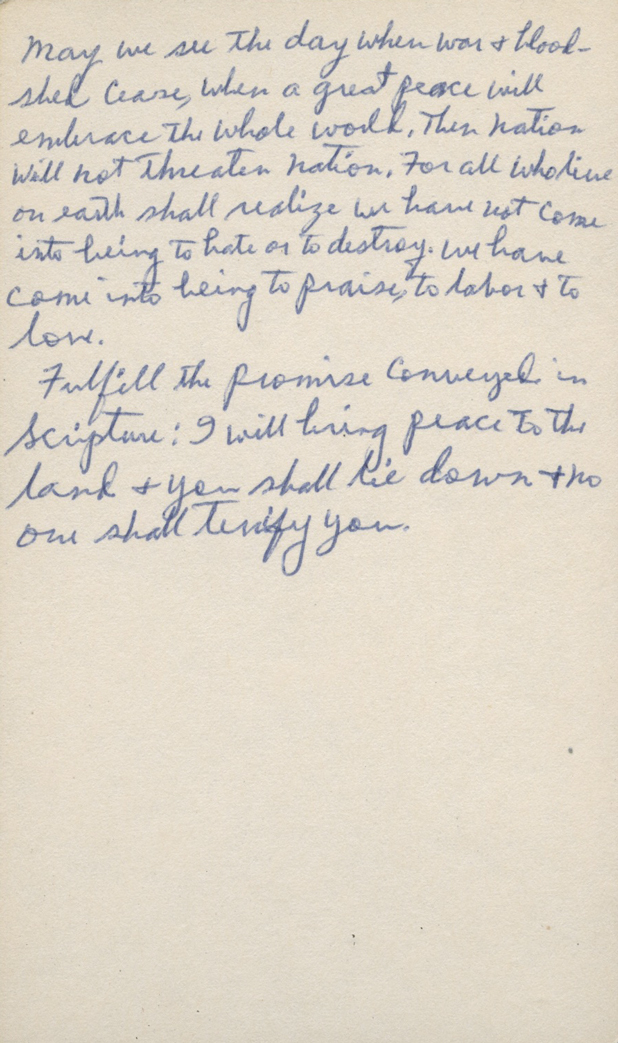 May we see the day when war & blood-
shed cease, when a great peace will
embrace the whole world. Then nation
will not threaten nation. For all who live
on earth shall realize we have not come
into being to hate or to destroy. We have
come into being to praise, to labor & to
love.
Fulfill the promise conveyed in
Scripture: I will bring peace to the
land & you shall lie down & no
one shall terrify you.